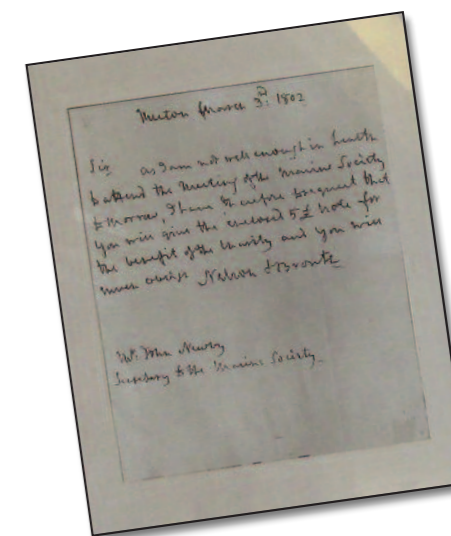 Merton March 3d: 1802
Sir as I am not well enough in health
to attend the Meeting of the Marine Society
to Morrow, I have therefore to request that
you will give the enclosed 5£ note for
the benefit of the Charity and you will
much oblige Nelson & Bronte
Mr. John Newby
Secretary to the Marine Society.